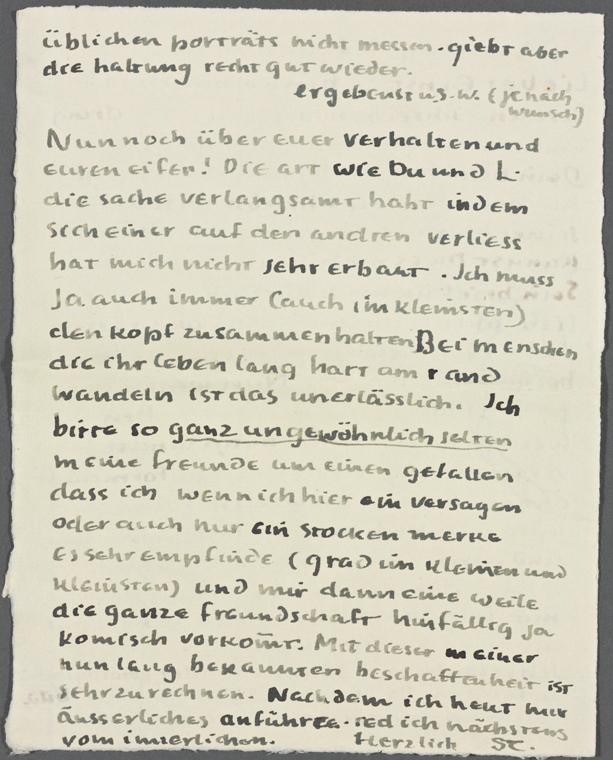 üblichen porträts nicht messen. giebt aber
die haltung recht gut wieder.
ergebenst u.s.w. (je nach
wunsch)
Nun noch über euer verhalten und
euren eifer! Die art wie Du und L.
die sache verlangsamt habt indem
sich einer auf den andren verliess
hat mich nicht sehr erbaut. Ich muss
ja auch immer (auch im kleinsten)
den kopf zusammenhalten Bei menschen
die ihr leben lang hart am rand
wandeln ist das unerlässlich. Ich
bitte so ganz ungewöhnlich selten
meine freunde um einen gefallen
dass ich wenn ich hier ein versagen
oder auch nur ein stocken merke
es sehr empfinde (grad im kleinen und
kleinsten) und mir dann eine weile
die ganze freundschaft hinfällig ja
komisch vorkom̄t. Mit dieser meiner
nun lang bekannten beschaffenheit ist
sehr zu rechnen. Nachdem ich heut nur
äusserliches anführte. red ich nächstens
vom innerlichen. Herzlich St.